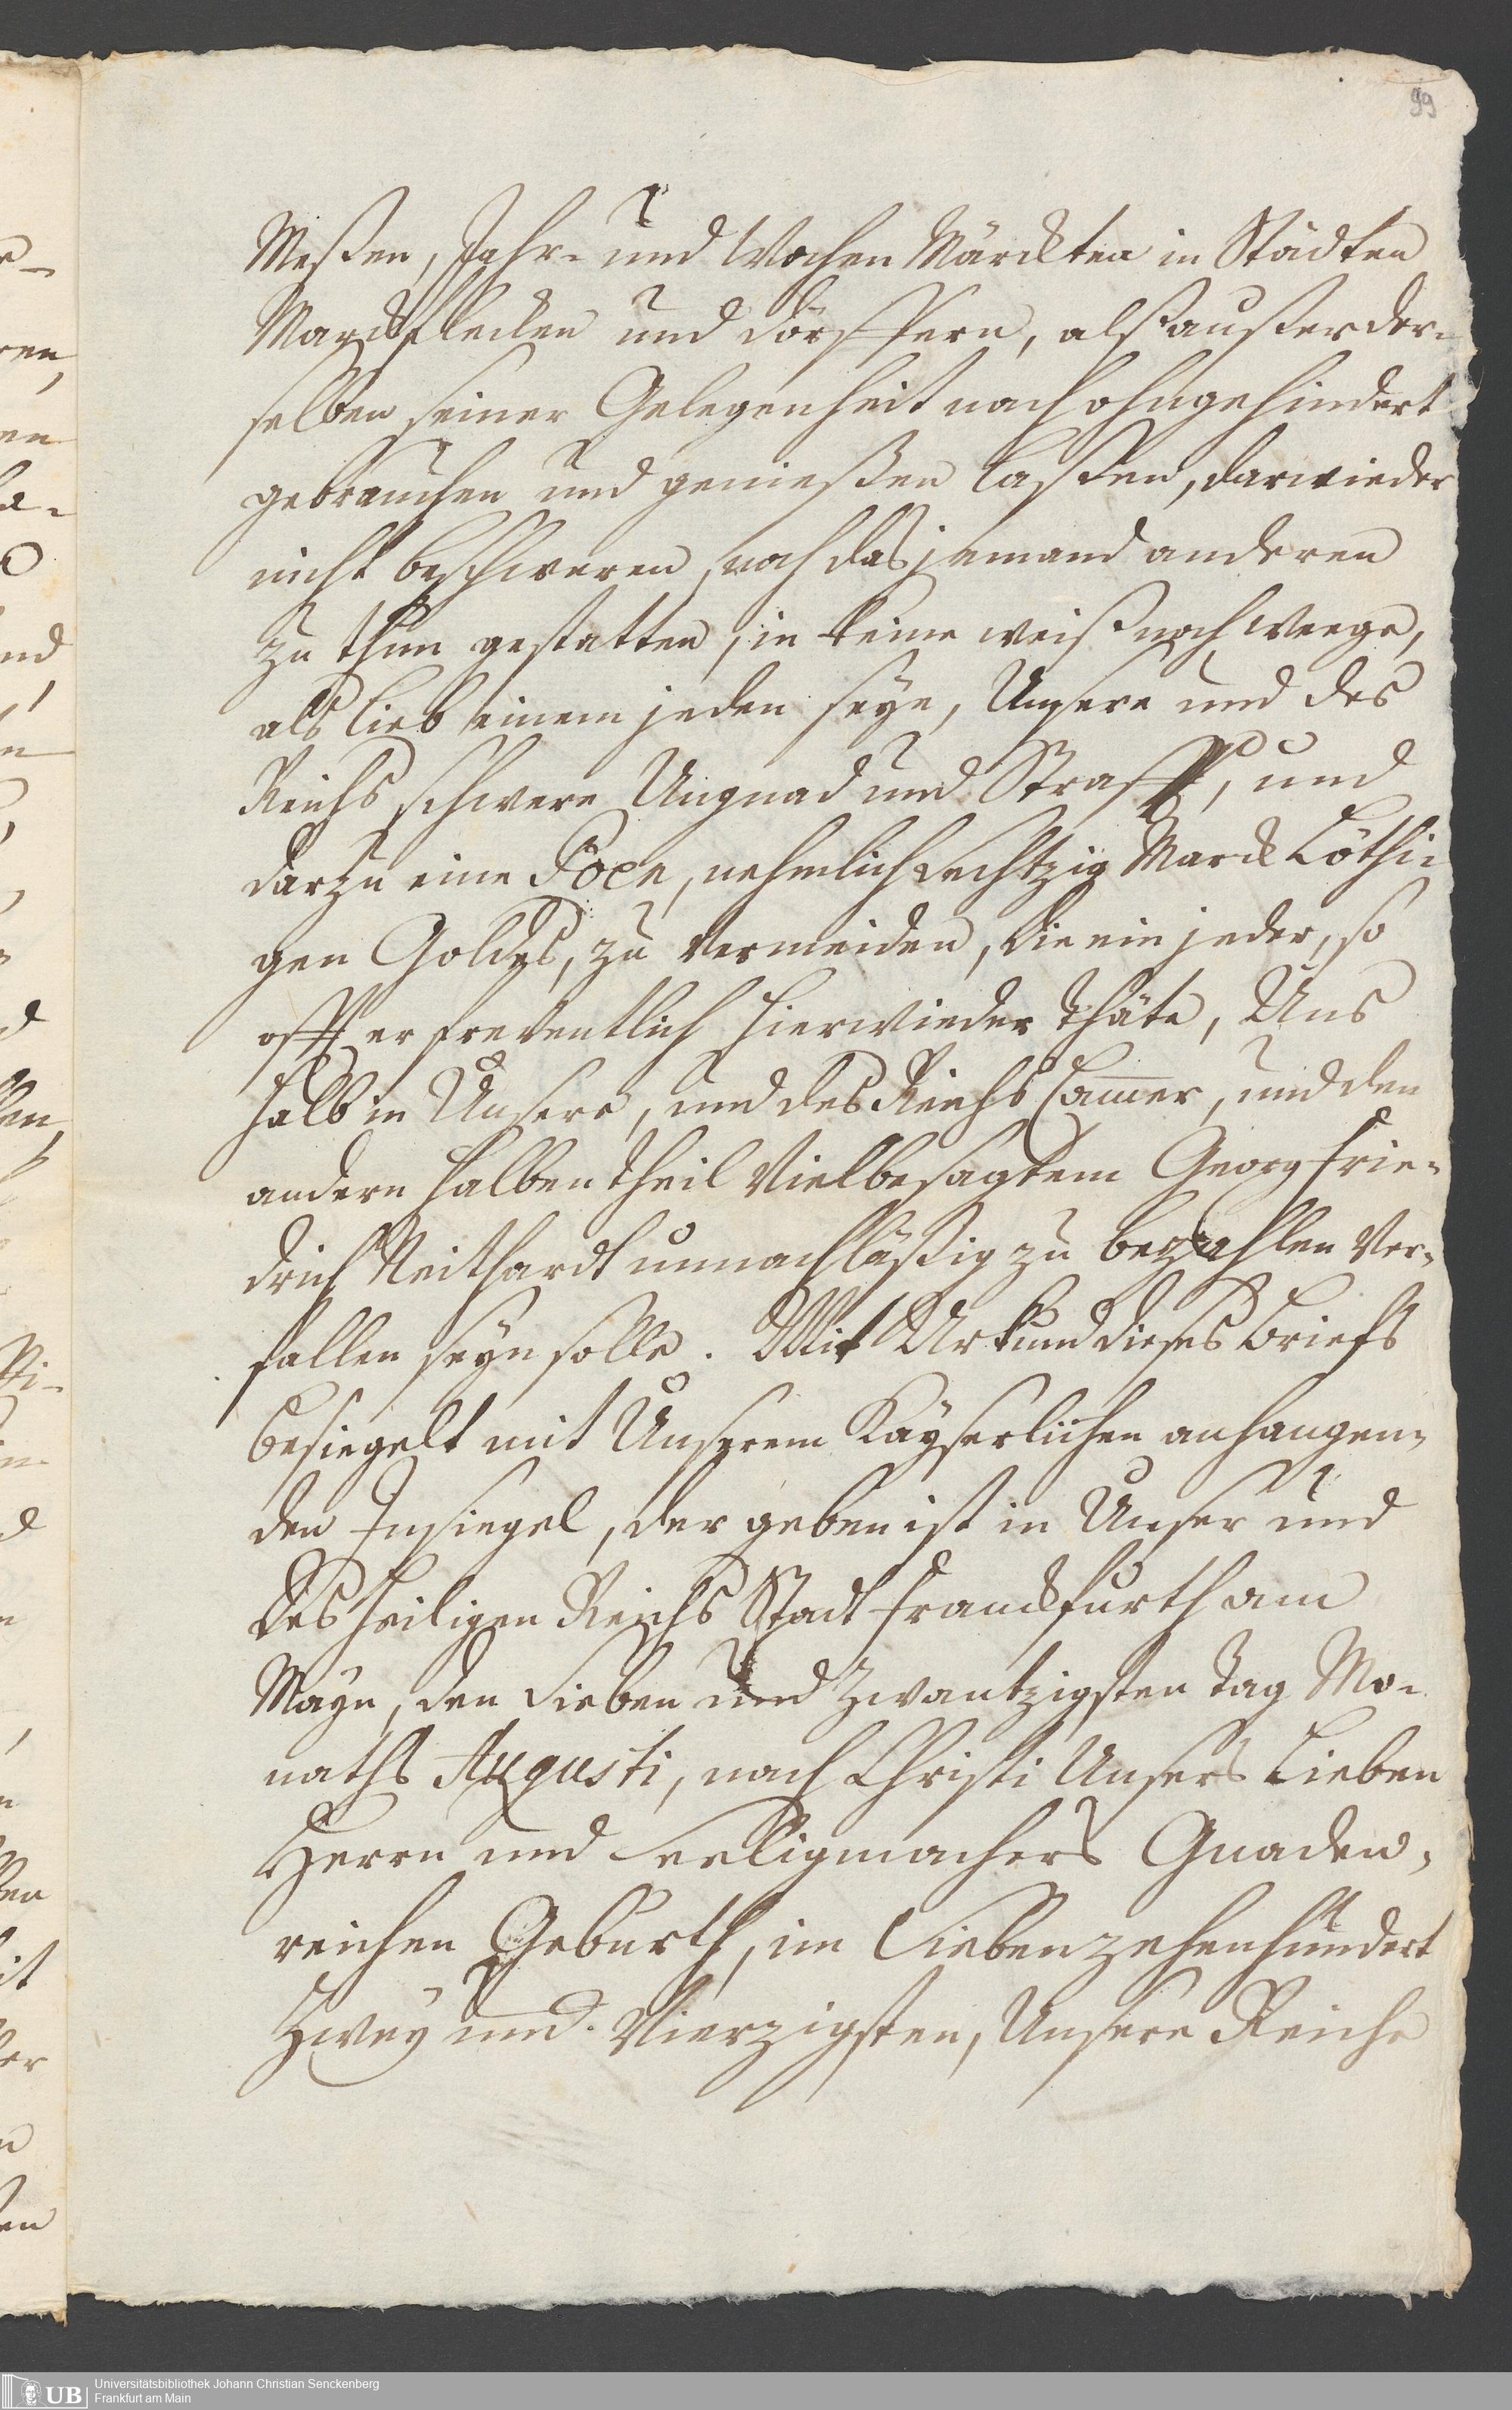 99
Meßen, Jahr- und Wochen Märckten in Städten
Marckflecken und Dörffern, alß außer der-
selben seiner Gelegenheit nach ohngehindert
gebrauchen und genießen laßen, darwieder
nicht beschweren, noch das jemand anderen
zu thun gestatten, in keine weiß noch weege,
als lieb einem jeden seye, Unsere und des
Reichs schwere Ungnad und Straff, und
darzu eine Pöen, nehmlich Sechtzig Marck Löthi-
gen Goldes, zu vermeiden, die ein jeder, so
offt er freventlich hierwieder thäte, Uns
halb in Unsere, und des Reichs Cammer, und den
andern halben theil Vielbesagtem Georg Frie-
drich Neithardt unnachläßig zu bezahlen Ver-
fallen seyn solle. Mit Urkund dieses Briefs
besiegelt mit Unserem Kayserlichen anhangen-
den Insiegel, der geben ist in Unser und
des heiligen Reichs Stadt Franckfurth am
Mayn, den Sieben und Zwantzigsten Tag Mo-
naths Augusti, nach Christi Unsers Lieben
Herrn und Seeligmachers Gnaden-
reichen Geburth, im Siebenzehenhundert
Zwey und Vierzigsten, Unsere Reiche
UB
Universitätsbibliothek Johann Christian Senckenberg
Frankfurt am Main